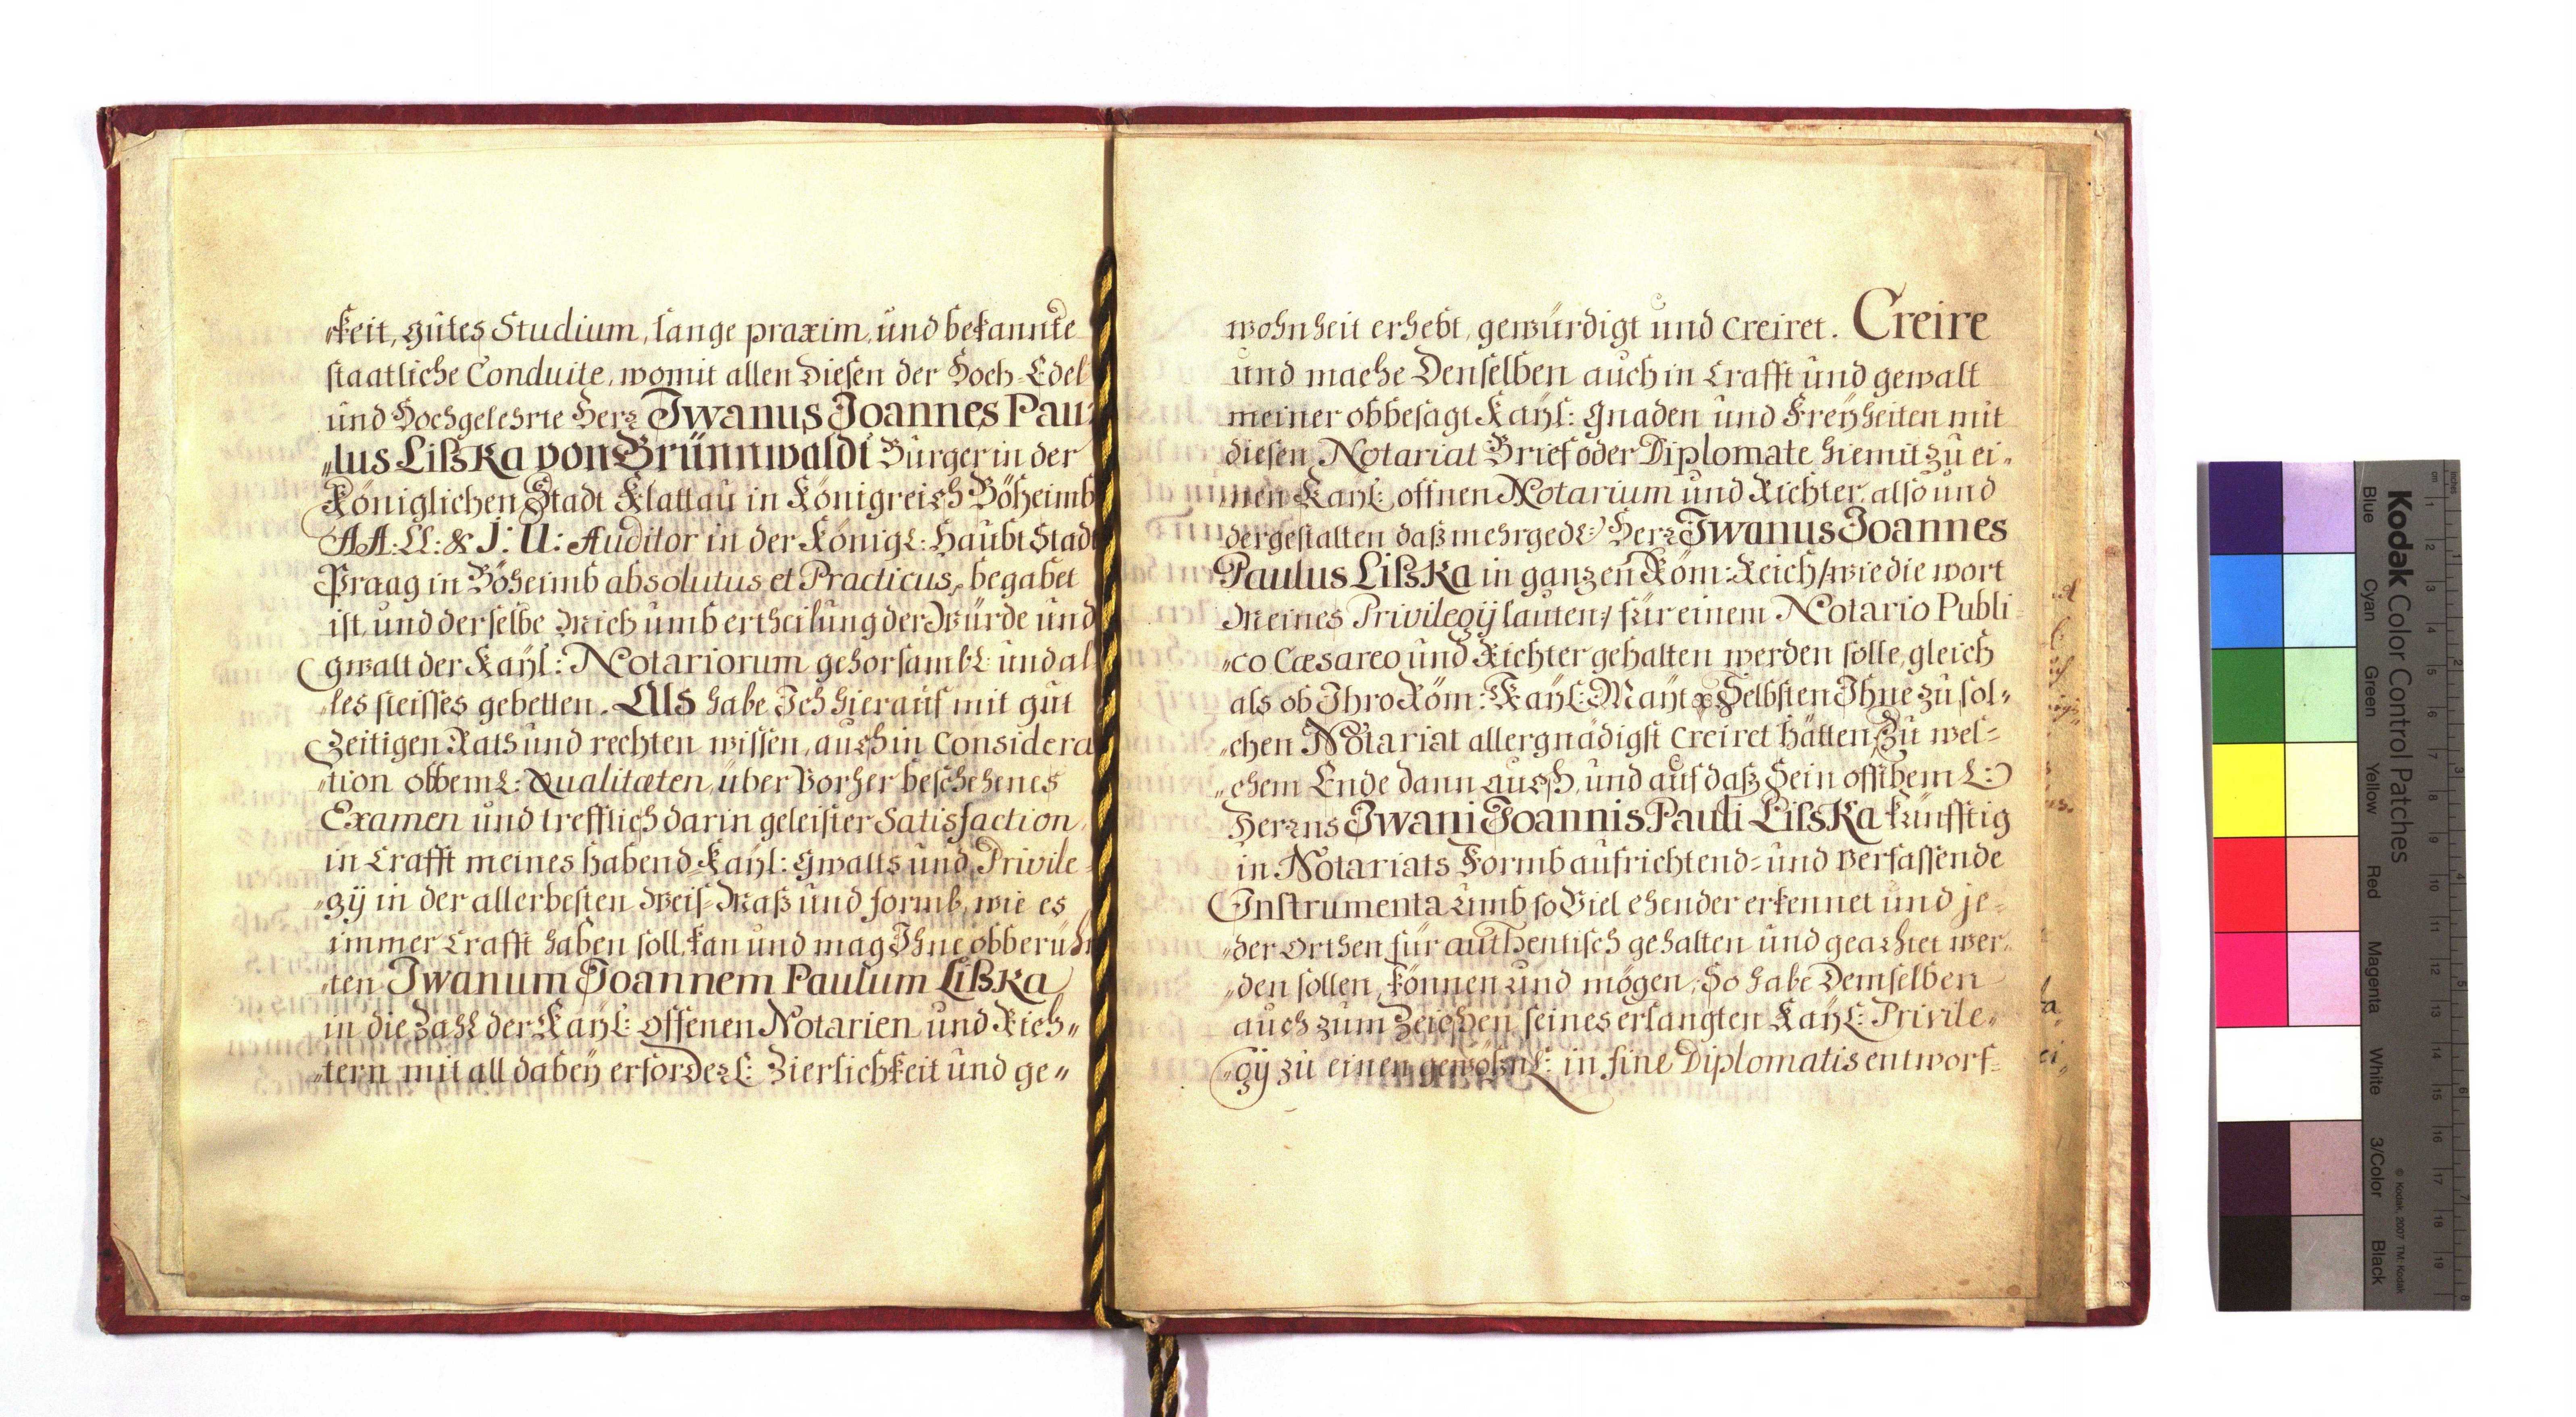 „keit, gutes Studium, lange praxim, und bekannte
staatliche Conduite, womit allen diesen der Hoch-Edel
und Hochgelehrte Herr Iwanus Joannes Pau„
„lus Lißka von Brünnwaldt Bürger in der
Königlichen Stadt Klattau in Königreich Böheimb
AA: LL: & J: U: Auditor in der Königl: Haubt Stadt
Praag in Böheimb absolutus et Practicus, begabet
ist, und derselbe Mich umb ertheilung der Würde und
gwalt der Kayl: Notariorum gehorsambl: und al
„les fleisses gebetten. Als habe Ich hierauf mit gut
Zeitigen Rath und rechten wissen, auch in Considera
„tion obbeml: Qualitæten, über Vorher beschehenes
Examen und trefflich darin geleister Satisfaction,
in Crafft meines habend-Kayl: gwalts und Privile-
„gÿ in der allerbesten Weis-Maß und formb, wie es
immer Crafft haben soll, kan und mag Ihne obberühr
„ten Iwanum Joannem Paulum Lißka
in die Zahl der Kayl: offenen Notarien und Rich„
„tern mit all dabeÿ erforderl: Zierlichkeit und ge„
wohnheit erhebt, gewürdigt und creiret. Creire
und mache Denselben auch in Crafft und gewalt
meiner obbesagt Kaÿl: gnaden und Freÿheiten mit
diesen Notariat Brief oder Diplomate hiemit zu ei„
„nen Kaÿl: offnen Notarium und Richter, also und
dergestalten daß mehrgedl:/ Herr Iwanus Joannes
Paulus Lißka in ganzen Röm: Reich /:wie die wort
Meines Privilegÿ lauten:/ für einem Notario Publi-
„co Cæsareo und Richter gehalten werden solle, gleich
als ob Ihro Röm: Kaÿl: Maÿt Selbsten Ihne zu sol„
„chen Notariat allergnädigst creiret hätten, Zu wel-
„chem Ende dann auch, und auf daß Sein offtbeml:
Herrns Iwani Joannis Pauli Lißka künfftig
in Notariats Formb aufrichtend- und verfassende
Instrumenta umb so Viel ehender erkennet und je-
„der Orthen für authentisch gehalten und geachtet wer-
„den sollen, können und mögen, So habe Demselben
auch zum Zeichen seines erlangten Kaÿl: Privile„
„gÿ zu einen gewöhnl: in fine Diplomatis entworf-
Kodak Color Control Patches
Blue Cyan Green Yellow Red Magenta White 3/Color Black
© Kodak, 2007 TM: Kodak